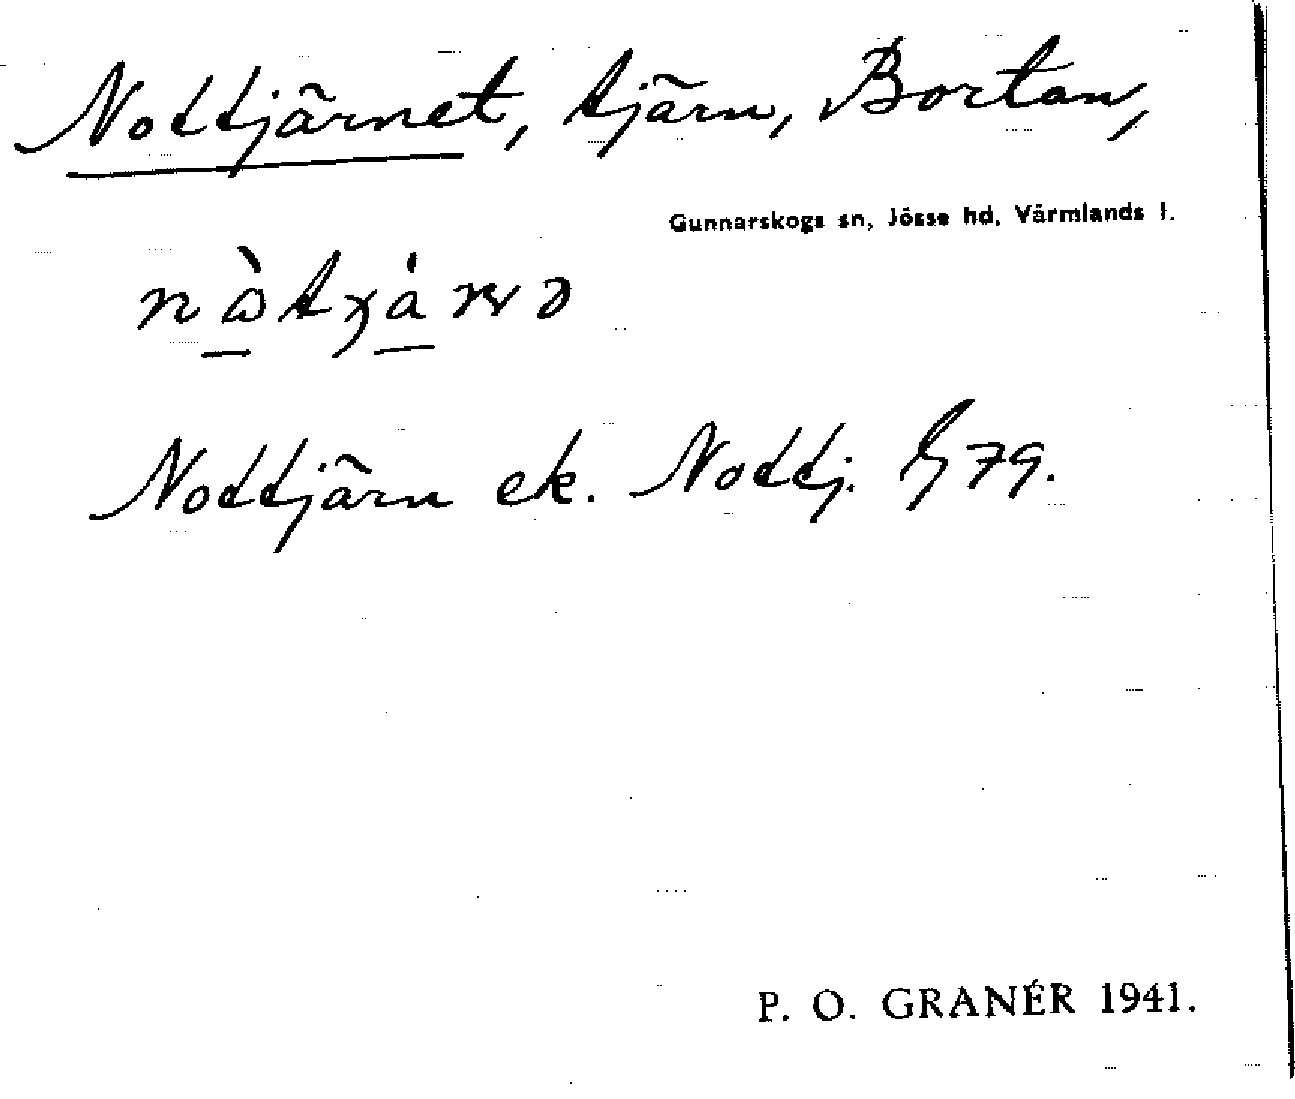 Nottjärnet, tjärn, Bortan,
Gunnarskogs sn, Jösse hd, Värmlands l.
Nottjärn ek. Nottj. G 79.
P. O. GRANÉR 1941.